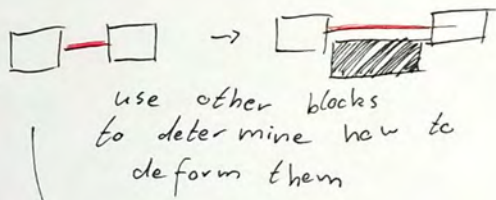 use other blocks
to determine how to
deform them